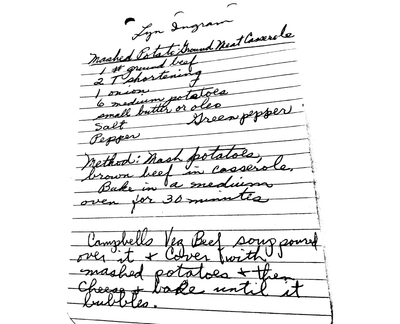 "Lyn Ingram"
Mashed Potato Ground Meat Casserole
1 # ground beef
2 T shortening
1 onion
6 medium potatoes
small butter or oleo
Salt Green pepper
Pepper
Method: Mash potatoes,
brown beef in casserole.
Bake in a medium
oven for 30 minutes
Campbells Veg Beef soup poured
over it + Cover with
mashed potatoes + then
Cheese + bake until it
bubbles.